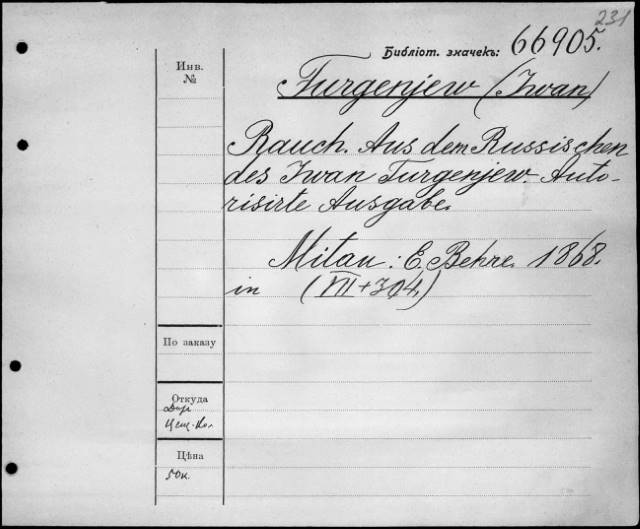 231
Библіот. значекъ: 66905.
Инв.
№
Turgenjew (Iwan)
Rauch. Aus dem Russischen
des Iwan Turgenjew. Auto-
risirte Ausgabe.
Mitau: E. Behre. 1868.
in (VII + 304.)
По заказу
Откуда
Цѣна
50к